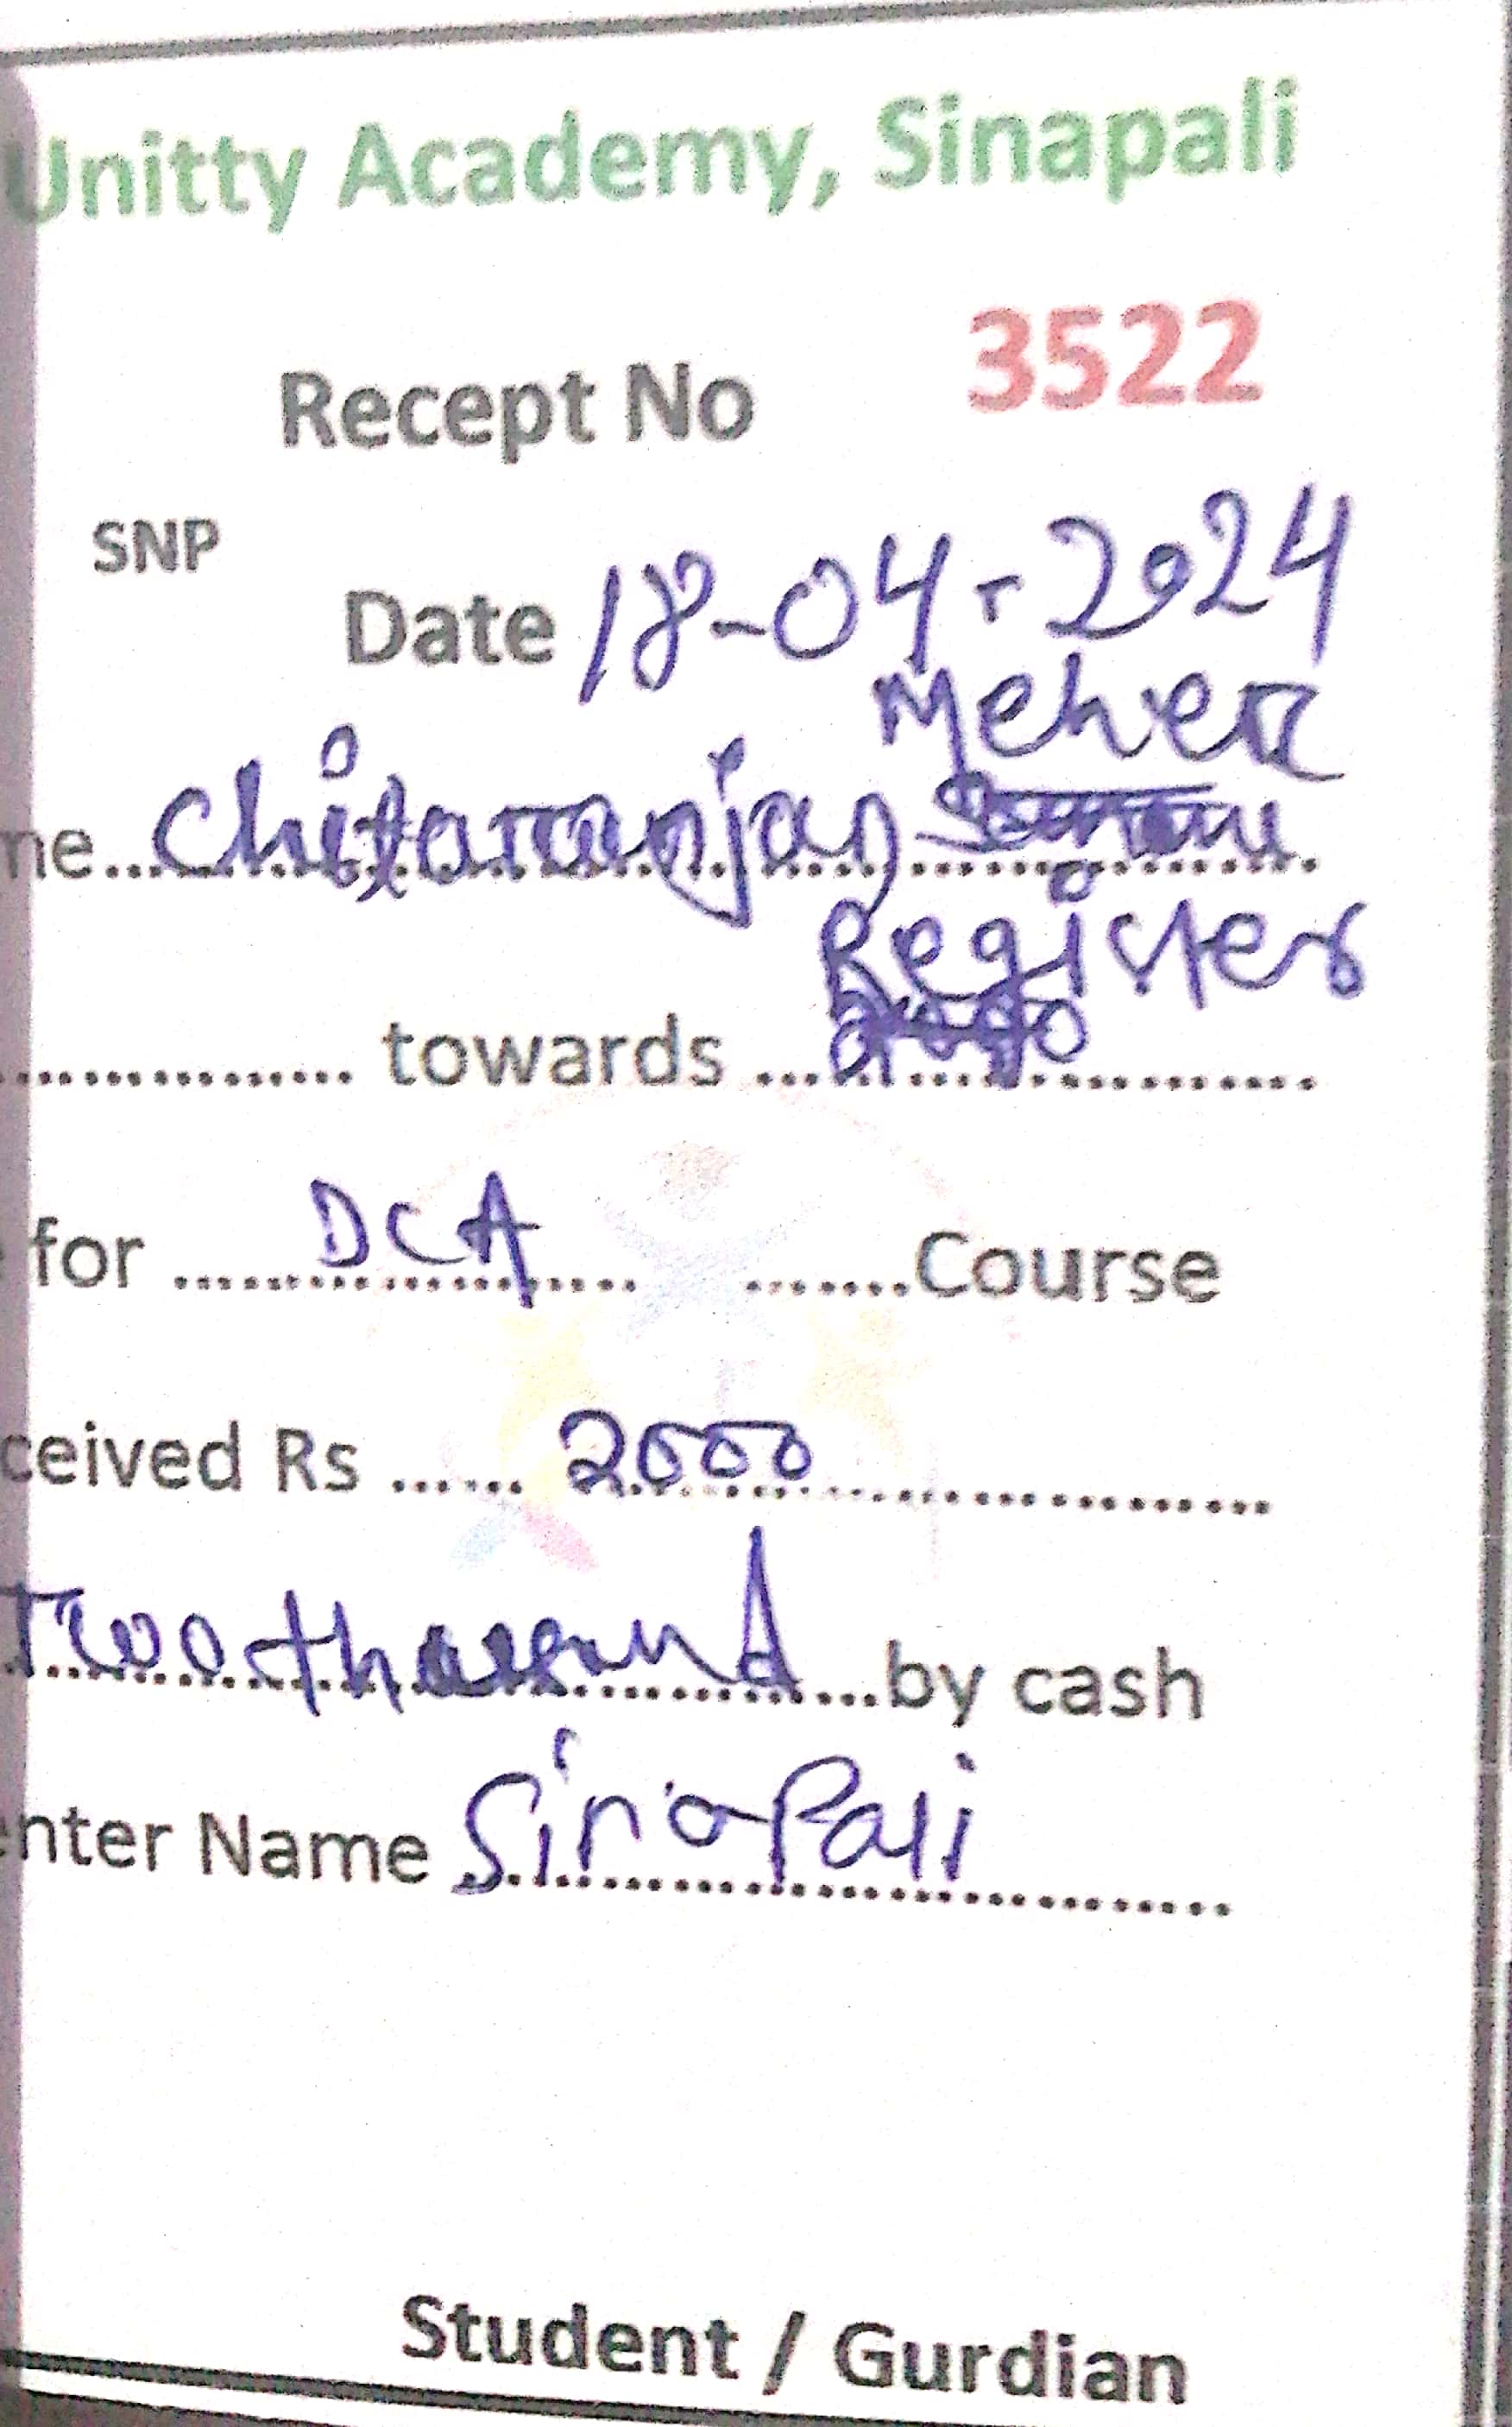 Unitty Academy, Sinapali
Recept No 3522
SNP
Date 18-04-2024
Meher
me..Chitaranjan
Register
............... towards ...
for ....DCA.... .......Course
ceived Rs ...... 2000 ..................
Two thousand...by cash
enter Name Sinapali
Student / Gurdian